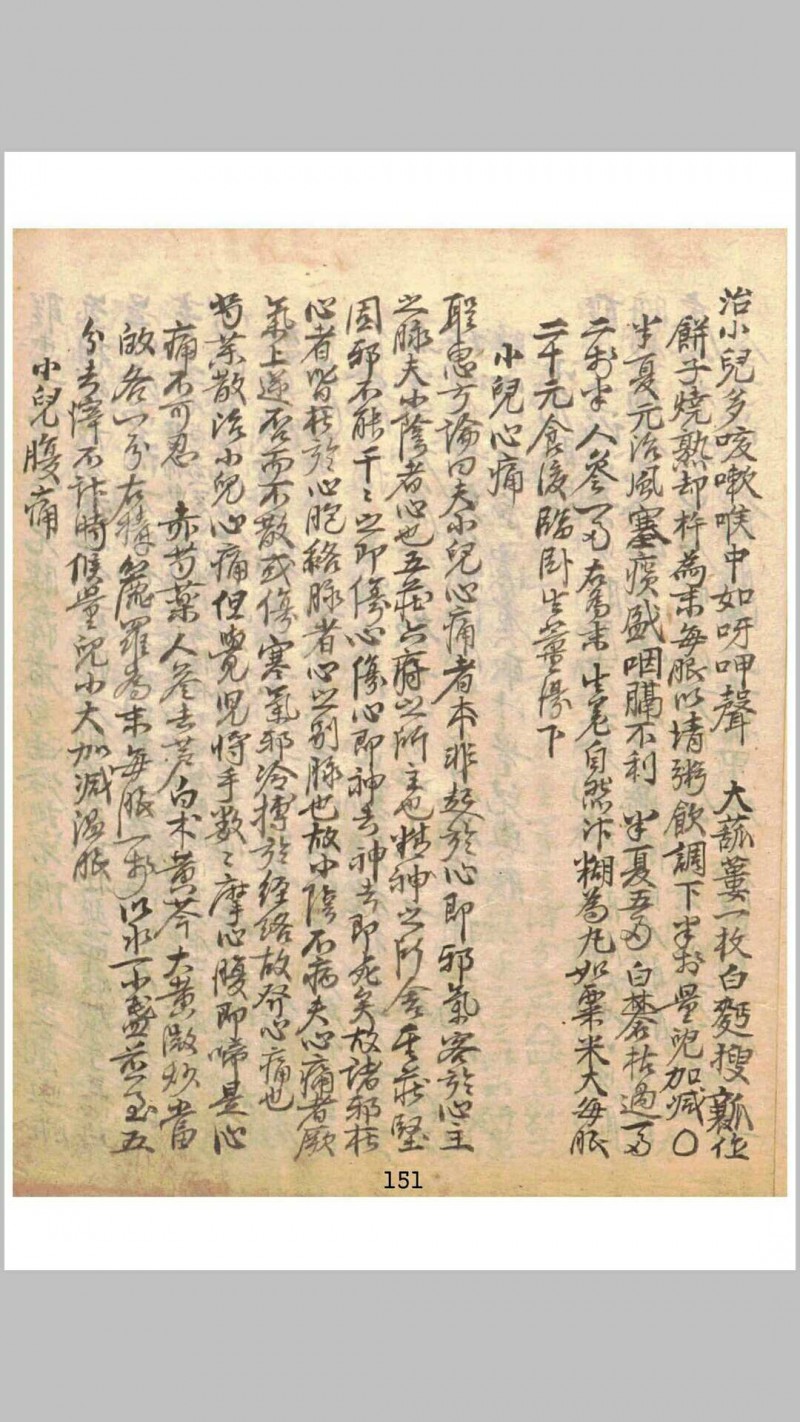 治小兒多咳嗽喉中如呀呷聲　大蓏蔞一枚白麪搜瓤作
餅子燒熟却杵為末每服以清粥飲調下半錢量兒加減〇
半夏元治風壅痰盛咽膈不利　半夏五兩　白礬枯過一兩
二錢半　人參一兩　右為末生姜自然汁糊為丸如粟米大每服
二十元食後臨卧生薑湯下
小兒心痛
聖惠方論曰夫小兒心痛者本非起於心即邪氣客於心主
之脉夫小陰者心也五藏六府之所主也精神之所舍其藏堅
固邪不能干々之即傷心傷心即神去神去即死矣故諸邪在
心者皆在於心胞絡脉者心之别脉也故小陰不病夫心痛者厥
氣上逆否而不散或傷寒氣邪冷搏於經絡故發心痛也
芍藥散治小兒心痛但覺兒將手數々摩心腹即啼是心
痛不可忍　赤芍藥人參去芦白术黄芩大黄微炒當
各一分右擣篩羅為末每服一錢以水一小盞煎至五
分去滓不計時候量兒小大加減温服
小兒腹痛
151